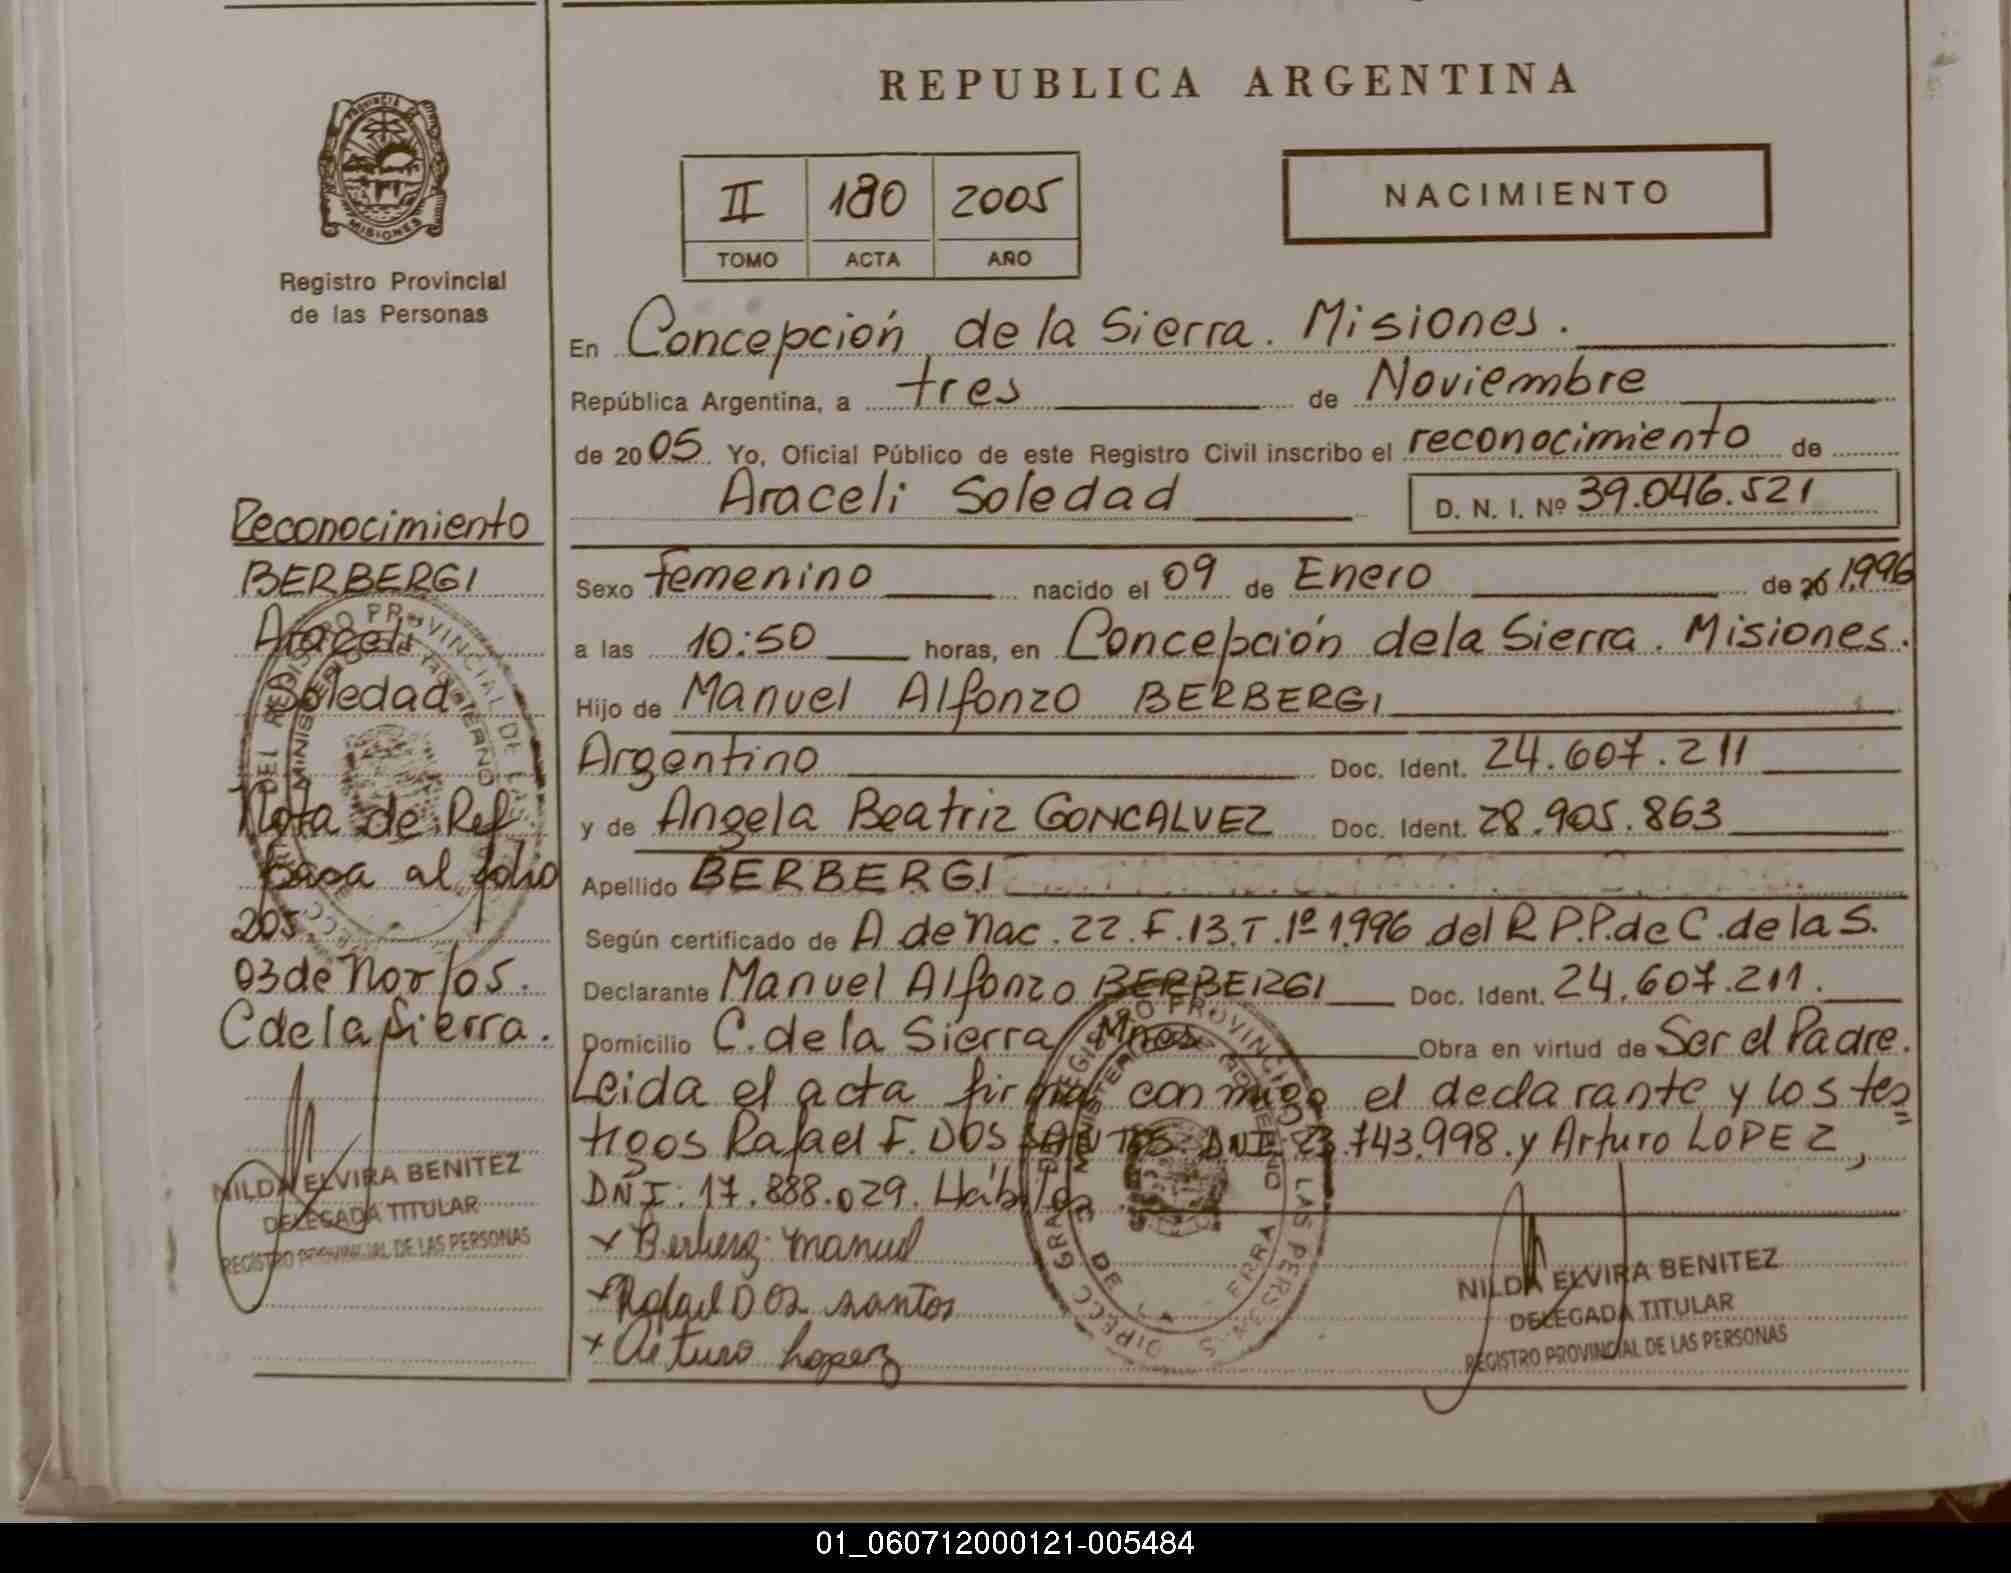 REPUBLICA ARGENTINA
PROVINCIA
MISIONES
Registro Provincial
de las Personas
II 180 2005
TOMO ACTA AÑO
NACIMIENTO
En Concepción de la Sierra. Misiones.
República Argentina, a tres de Noviembre
de 2005 Yo, Oficial Público de este Registro Civil inscribo el reconocimiento de
Araceli Soledad D. N. I. Nº 39.046.521
Sexo femenino nacido el 09 de Enero de 1996
a las 10:50 horas, en Concepción dela Sierra. Misiones.
Hijo de Manuel Alfonzo BERBERGI
Argentino Doc. Ident. 24.607.211
y de Angela Beatriz GONCALVEZ Doc. Ident. 28.905.863
Apellido BERBERGI
Según certificado de A de Nac. 22. F. 13. T. 1º 1996 del R P.P. de C. de la S.
Declarante Manuel Alfonzo BERBERGI Doc. Ident. 24.607.211.
Domicilio C. de la Sierra Mnes Obra en virtud de Ser el Padre.
Leida el acta firma conmigo el declarante y los tes=
tigos Rafael F. DOS SANTOS DNI 23.743.998. y Arturo LOPEZ,
DNI: 17.888.029. Hábiles
x Berbergi manuel
x Rafael Dos santos
x Arturo Lopez
NILDA ELVIRA BENITEZ
DELEGADA TITULAR
REGISTRO PROVINCIAL DE LAS PERSONAS
Reconocimiento
BERBERGI
Araceli
Soledad
Nota de Ref
pasa al folio
205
03 de Nov/05.
C de la Sierra.
NILDA ELVIRA BENITEZ
DELEGADA TITULAR
REGISTRO PROVINCIAL DE LAS PERSONAS
01_060712000121-005484